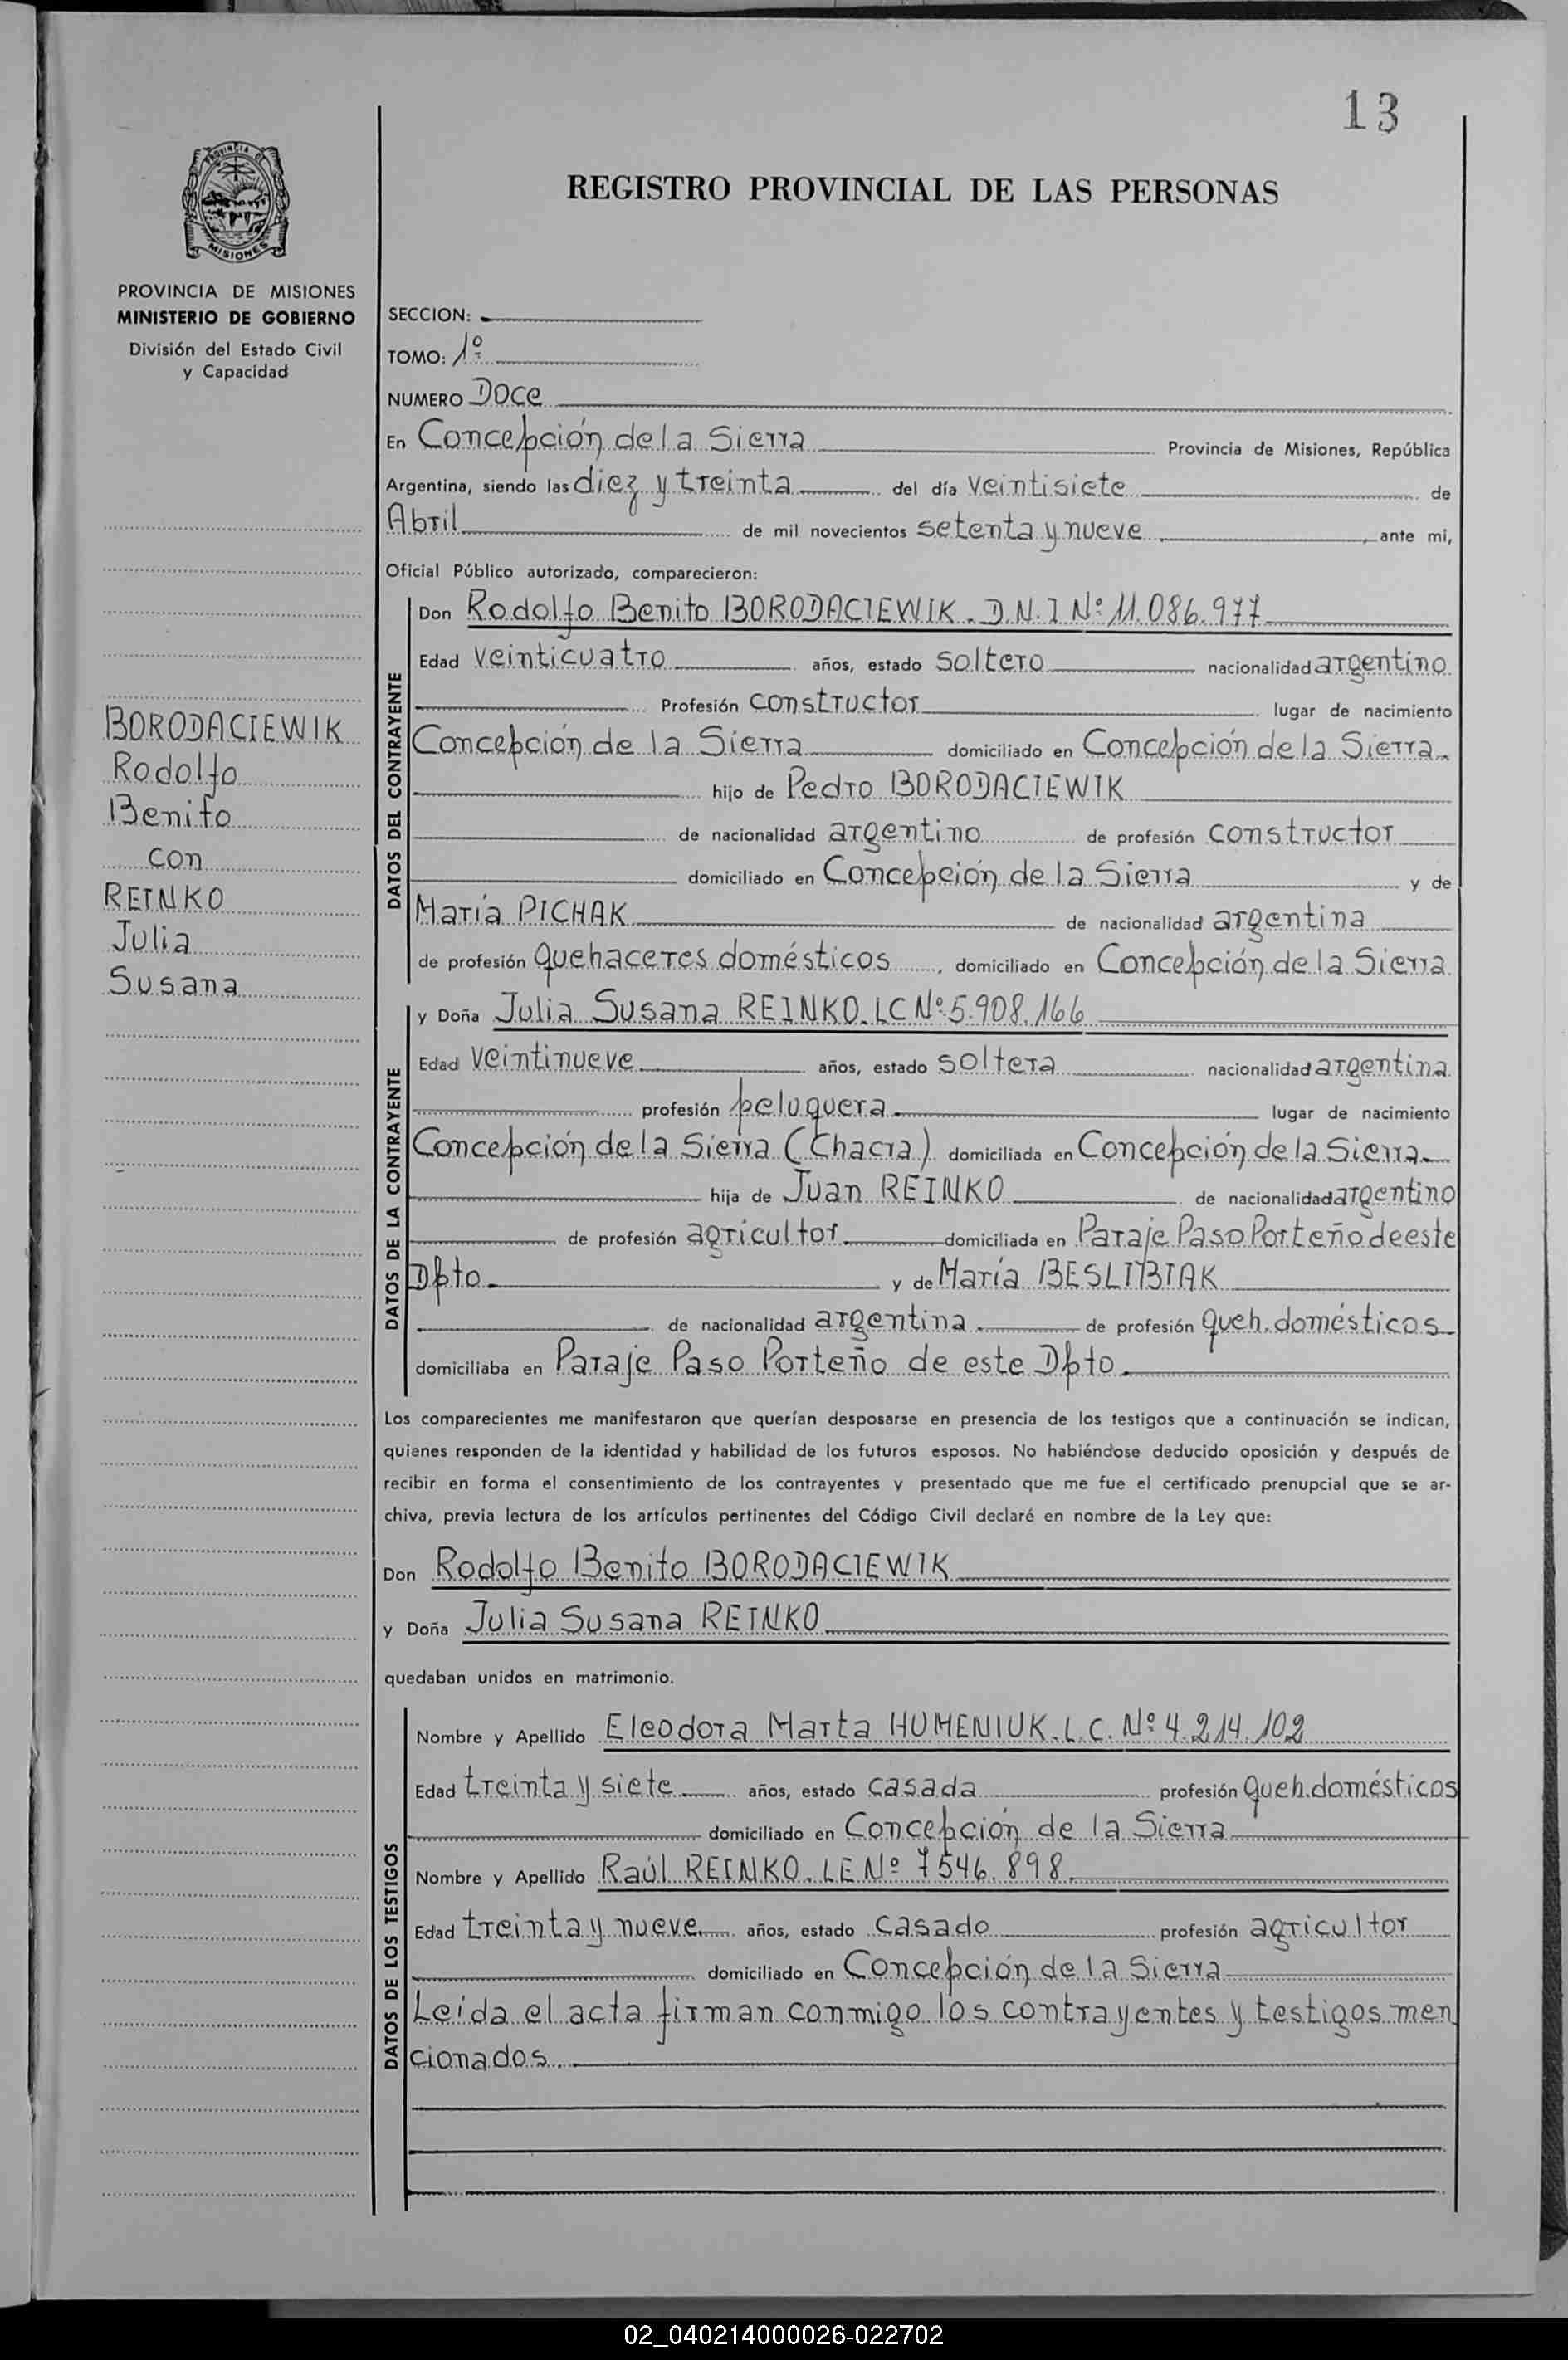 13
PROVINCIA DE
MISIONES
PROVINCIA DE MISIONES
MINISTERIO DE GOBIERNO
División del Estado Civil
y Capacidad
BORODACIEWIK
Rodolfo
Benito
con
REINKO
Julia
Susana
REGISTRO PROVINCIAL DE LAS PERSONAS
SECCION:
TOMO: 1º
NUMERO Doce
En Concepción de la Sierra Provincia de Misiones, República
Argentina, siendo las diez y treinta del día veintisiete de
Abril de mil novecientos setenta y nueve, ante mi,
Oficial Público autorizado, comparecieron:
DATOS DEL CONTRAYENTE
Don Rodolfo Benito BORODACIEWIK. D.N.I Nº 11.086.977
Edad veinticuatro años, estado soltero nacionalidad argentino
Profesión constructor lugar de nacimiento
Concepción de la Sierra domiciliado en Concepción de la Sierra
hijo de Pedro BORODACIEWIK
de nacionalidad argentino de profesión constructor
domiciliado en Concepción de la Sierra y de
María PICHAK de nacionalidad argentina
de profesión quehaceres domésticos, domiciliado en Concepción de la Sierra
DATOS DE LA CONTRAYENTE
y Doña Julia Susana REINKO. LC Nº 5.908.166
Edad veintinueve años, estado soltera nacionalidad argentina
profesión peluquera lugar de nacimiento
Concepción de la Sierra (Chacra) domiciliada en Concepción de la Sierra
hija de Juan REINKO de nacionalidad argentino
de profesión agricultor domiciliada en Paraje Paso Porteño de este
Dpto. y de María BESLIBIAK
de nacionalidad argentina de profesión queh. domésticos
domiciliaba en Paraje Paso Porteño de este Dpto.
Los comparecientes me manifestaron que querían desposarse en presencia de los testigos que a continuación se indican,
quienes responden de la identidad y habilidad de los futuros esposos. No habiéndose deducido oposición y después de
recibir en forma el consentimiento de los contrayentes y presentado que me fue el certificado prenupcial que se ar-
chiva, previa lectura de los artículos pertinentes del Código Civil declaré en nombre de la Ley que:
Don Rodolfo Benito BORODACIEWIK
y Doña Julia Susana REINKO
quedaban unidos en matrimonio.
DATOS DE LOS TESTIGOS
Nombre y Apellido Eleodora Marta HUMENIUK. L.C. Nº 4.214.102
Edad treinta y siete años, estado casada profesión queh. domésticos
domiciliado en Concepción de la Sierra
Nombre y Apellido Raúl REINKO. LE Nº 7546.898.
Edad treinta y nueve años, estado casado profesión agricultor
domiciliado en Concepción de la Sierra
Leída el acta firman conmigo los contrayentes y testigos men
cionados.
02_040214000026-022702